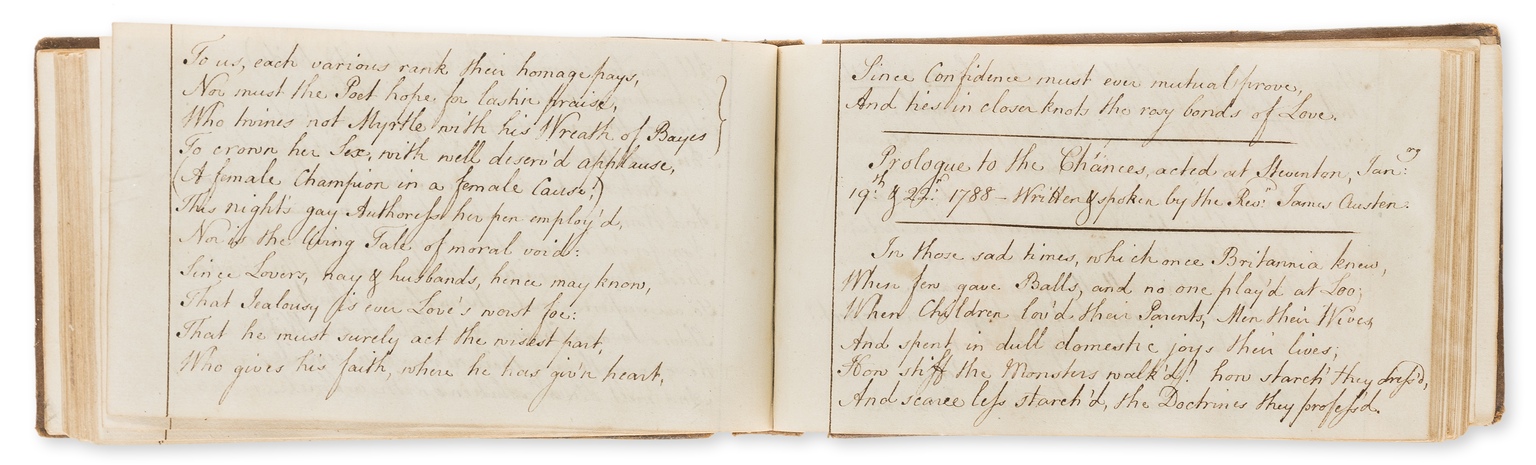 To us, each various rank their homage pays,
Nor must the Poet hope for lastin praise,
Who twines not Myrtle with his Wreath of Bayes
To crown her Sex, with well deserv'd applause,
(A female Champion in a female Cause!)
This night's gay Authoress her pen employ'd,
Nor is the living Tale of moral void:
Since Lovers, nay & husbands, hence may know,
That Jealousy is ever Love's worst foe:
That he must surely act the wisest part,
Who gives his faith, where he has giv'n heart,
Since Confidence must ever mutual prove,
And ties in closer knots the rosy bonds of Love.
Prologue to the Chances, acted at Steventon, Jan:ry
19:th & 22:d 1788 – Written & spoken by the Rev:d James Austen.
In those sad times, which once Britannia knew,
When few gave Balls, and no one play'd at Loo;
When Children lov'd their Parents, Men their Wives,
And spent in dull domestic joys their lives;
How stiff the Monsters walk'd! how starch' they dress'd,
And scarce less starch'd, the Doctrines they profess'd.